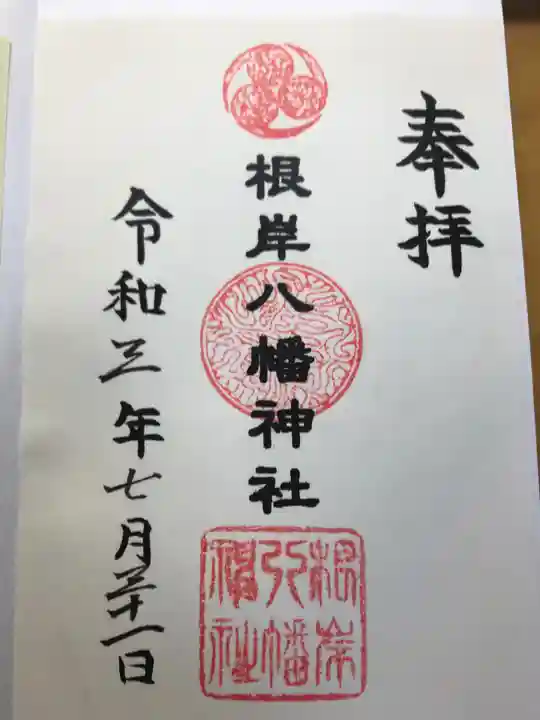 奉拝
根岸八幡神社
根岸八幡神社
令和三年七月三十一日